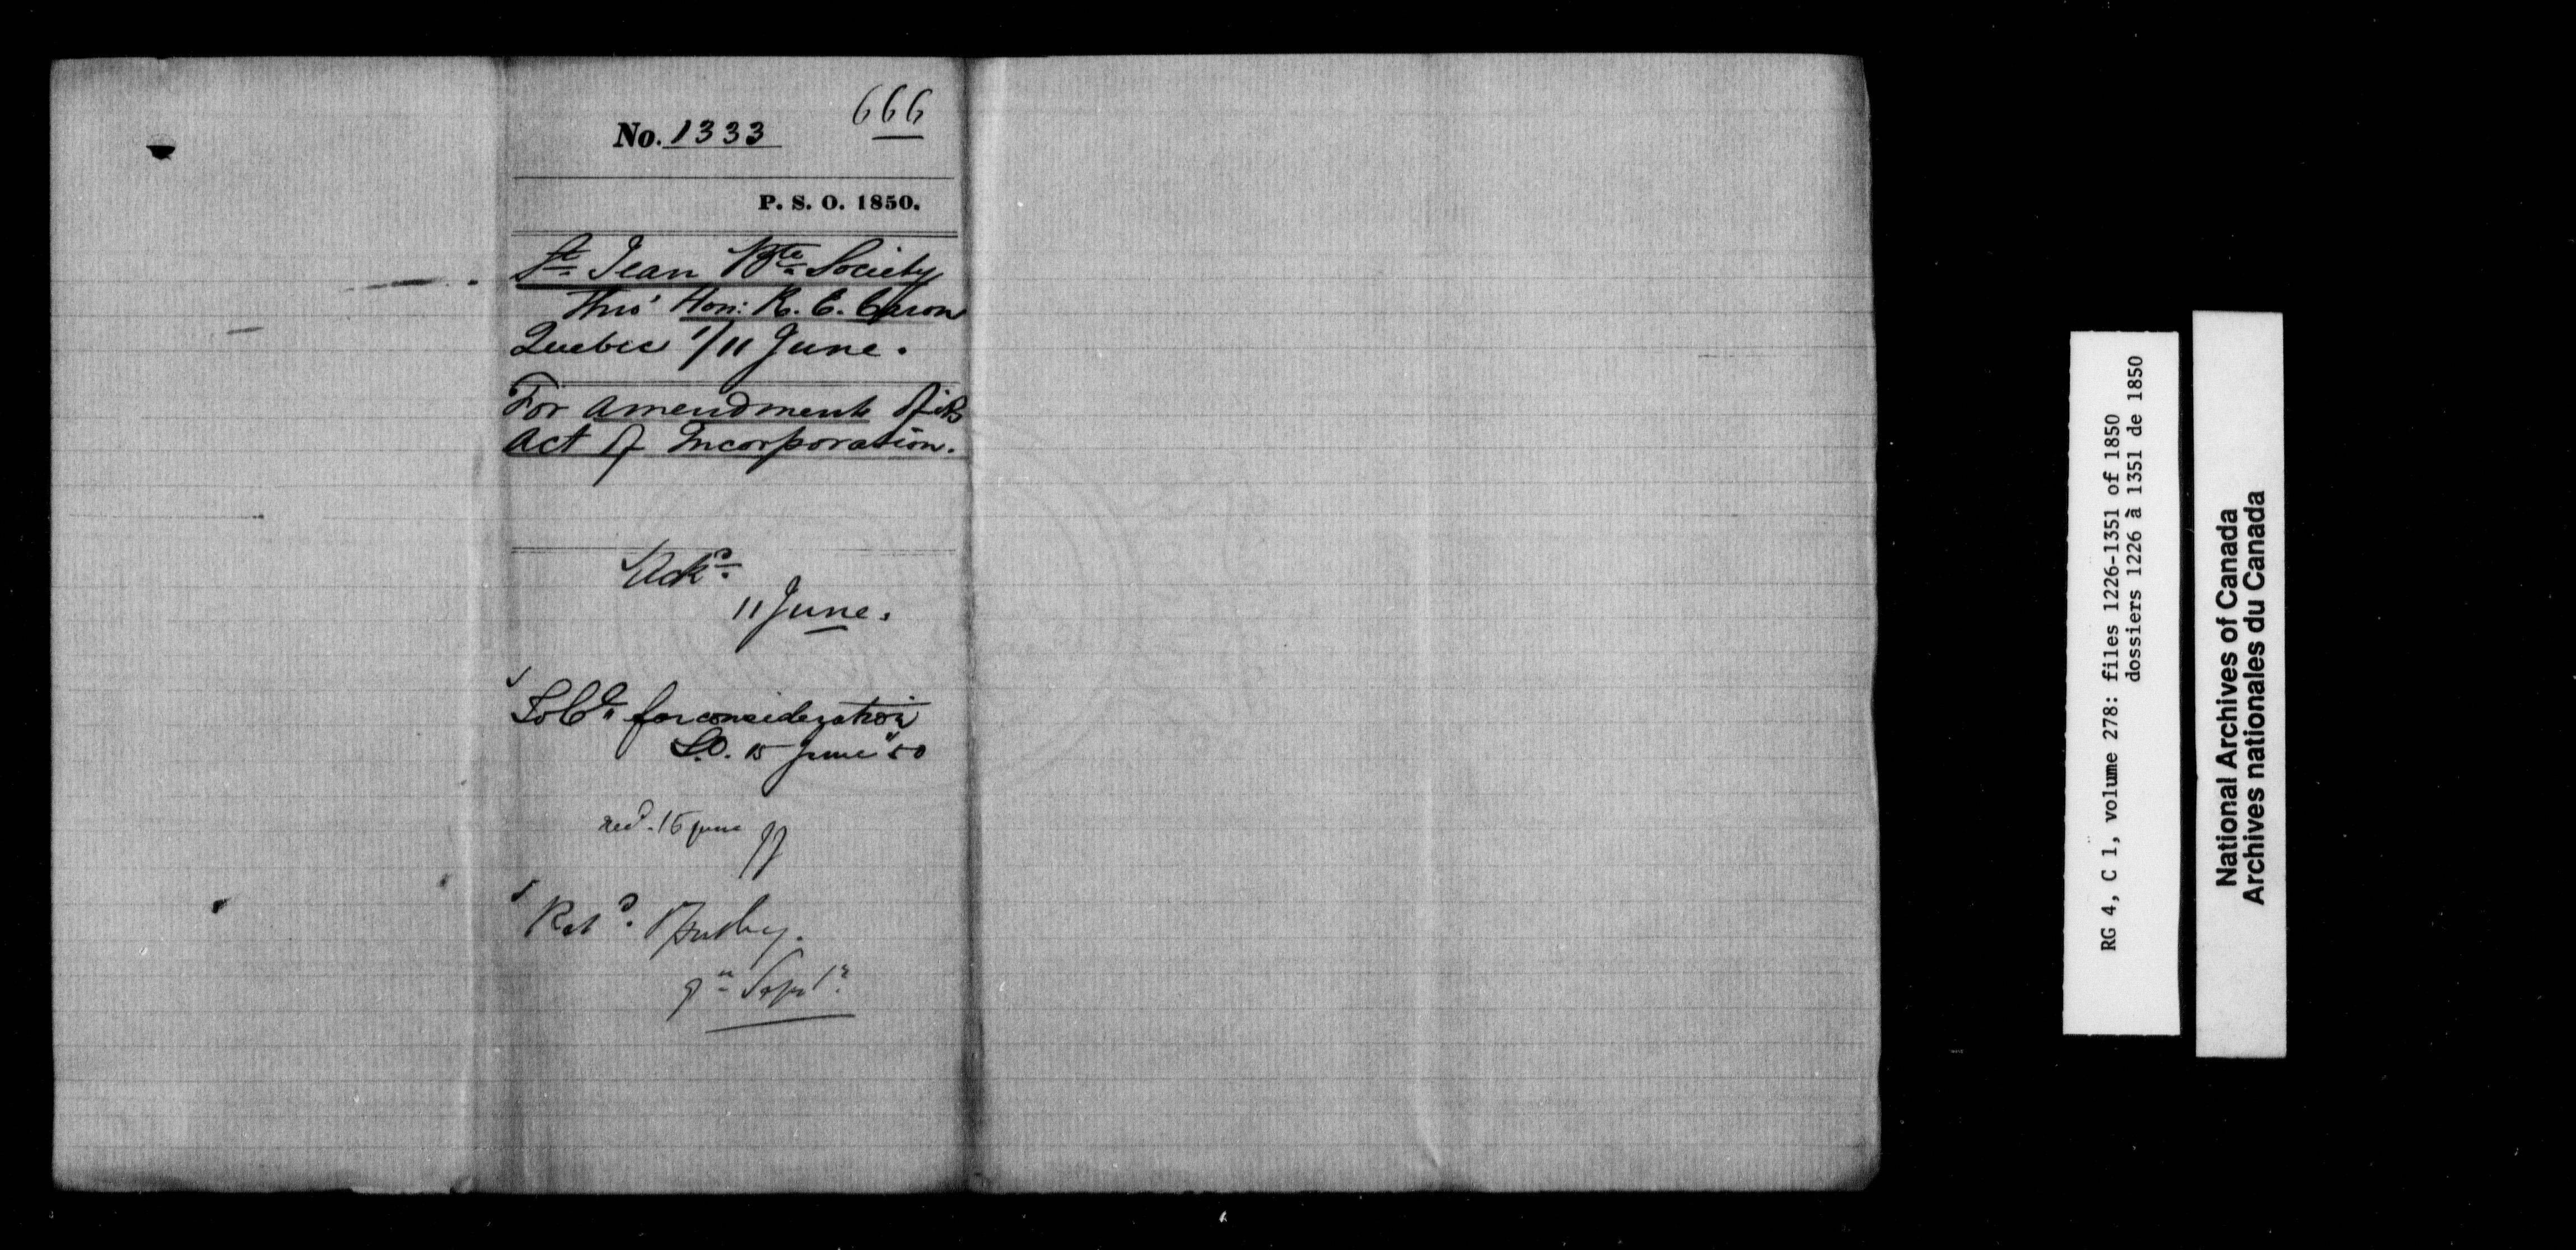 666
No. 1333
P. S. O. 1850.
St Jean Bte Society
Thro' Hon: R. E. Caron
Quebec 1/11 June.
For amendments of its
Act of Incorporation.
Ackd.
11 June.
for consideration
15 June 50
recd. 15 june
Retd.
9th Septr.
RG 4, C 1, volume 278: files 1226-1351 of 1850
dossiers 1226 à 1351 de 1850
National Archives of Canada
Archives nationales du Canada